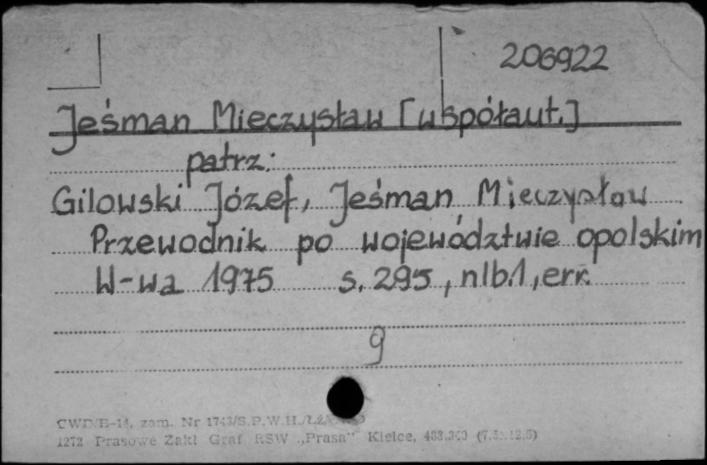 206922
Jeśman Mieczysław [współaut.]
patrz:
Gilowski Józef, Jeśman Mieczysław
Przewodnik po województwie opolskim
W-wa 1975 s. 295, nlb.1, err.
9
CWD/E-14, zam. Nr 1743/S.P.W.H./
1272 Prasowe Zakł Graf RSW „Prasa" Kielce,